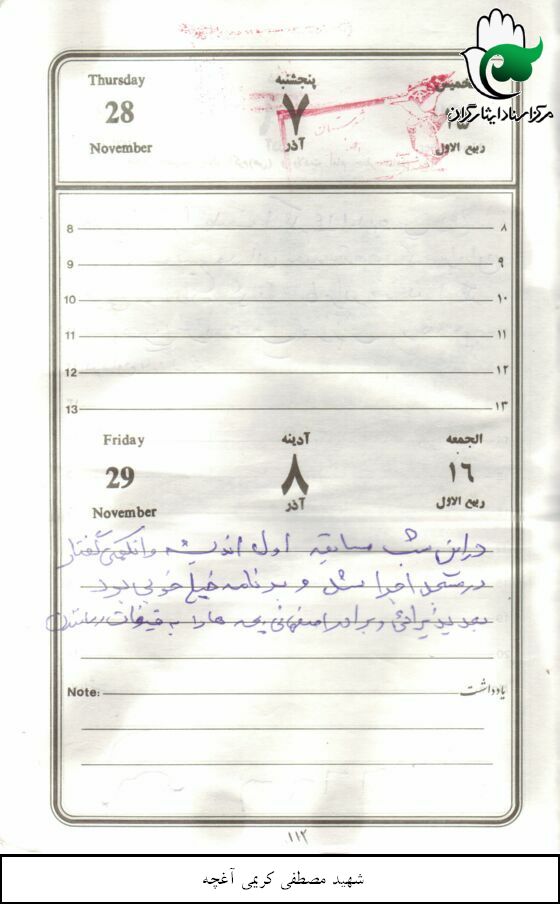 مرکز اسناد ایثارگران
Thursday پنجشنبه الخمیس
28 ۷ ۱۵
November آذر ربیع الاول
8 ۸
9 ۹
10 ۱۰
11 ۱۱
12 ۱۲
13 ۱۳
Friday آدینه الجمعه
29 ۸ ۱۶
November آذر ربیع الاول
در این شب مسابقه اول اندیشه و انگهی گفتار
در مسجد اجرا شد و برنامه خیلی خوبی بود
بعد پذیرائی و برادر اصفهانی بچه ها را به
Note: یادداشت
۱۱۲
شهید مصطفی کریمی آغچه